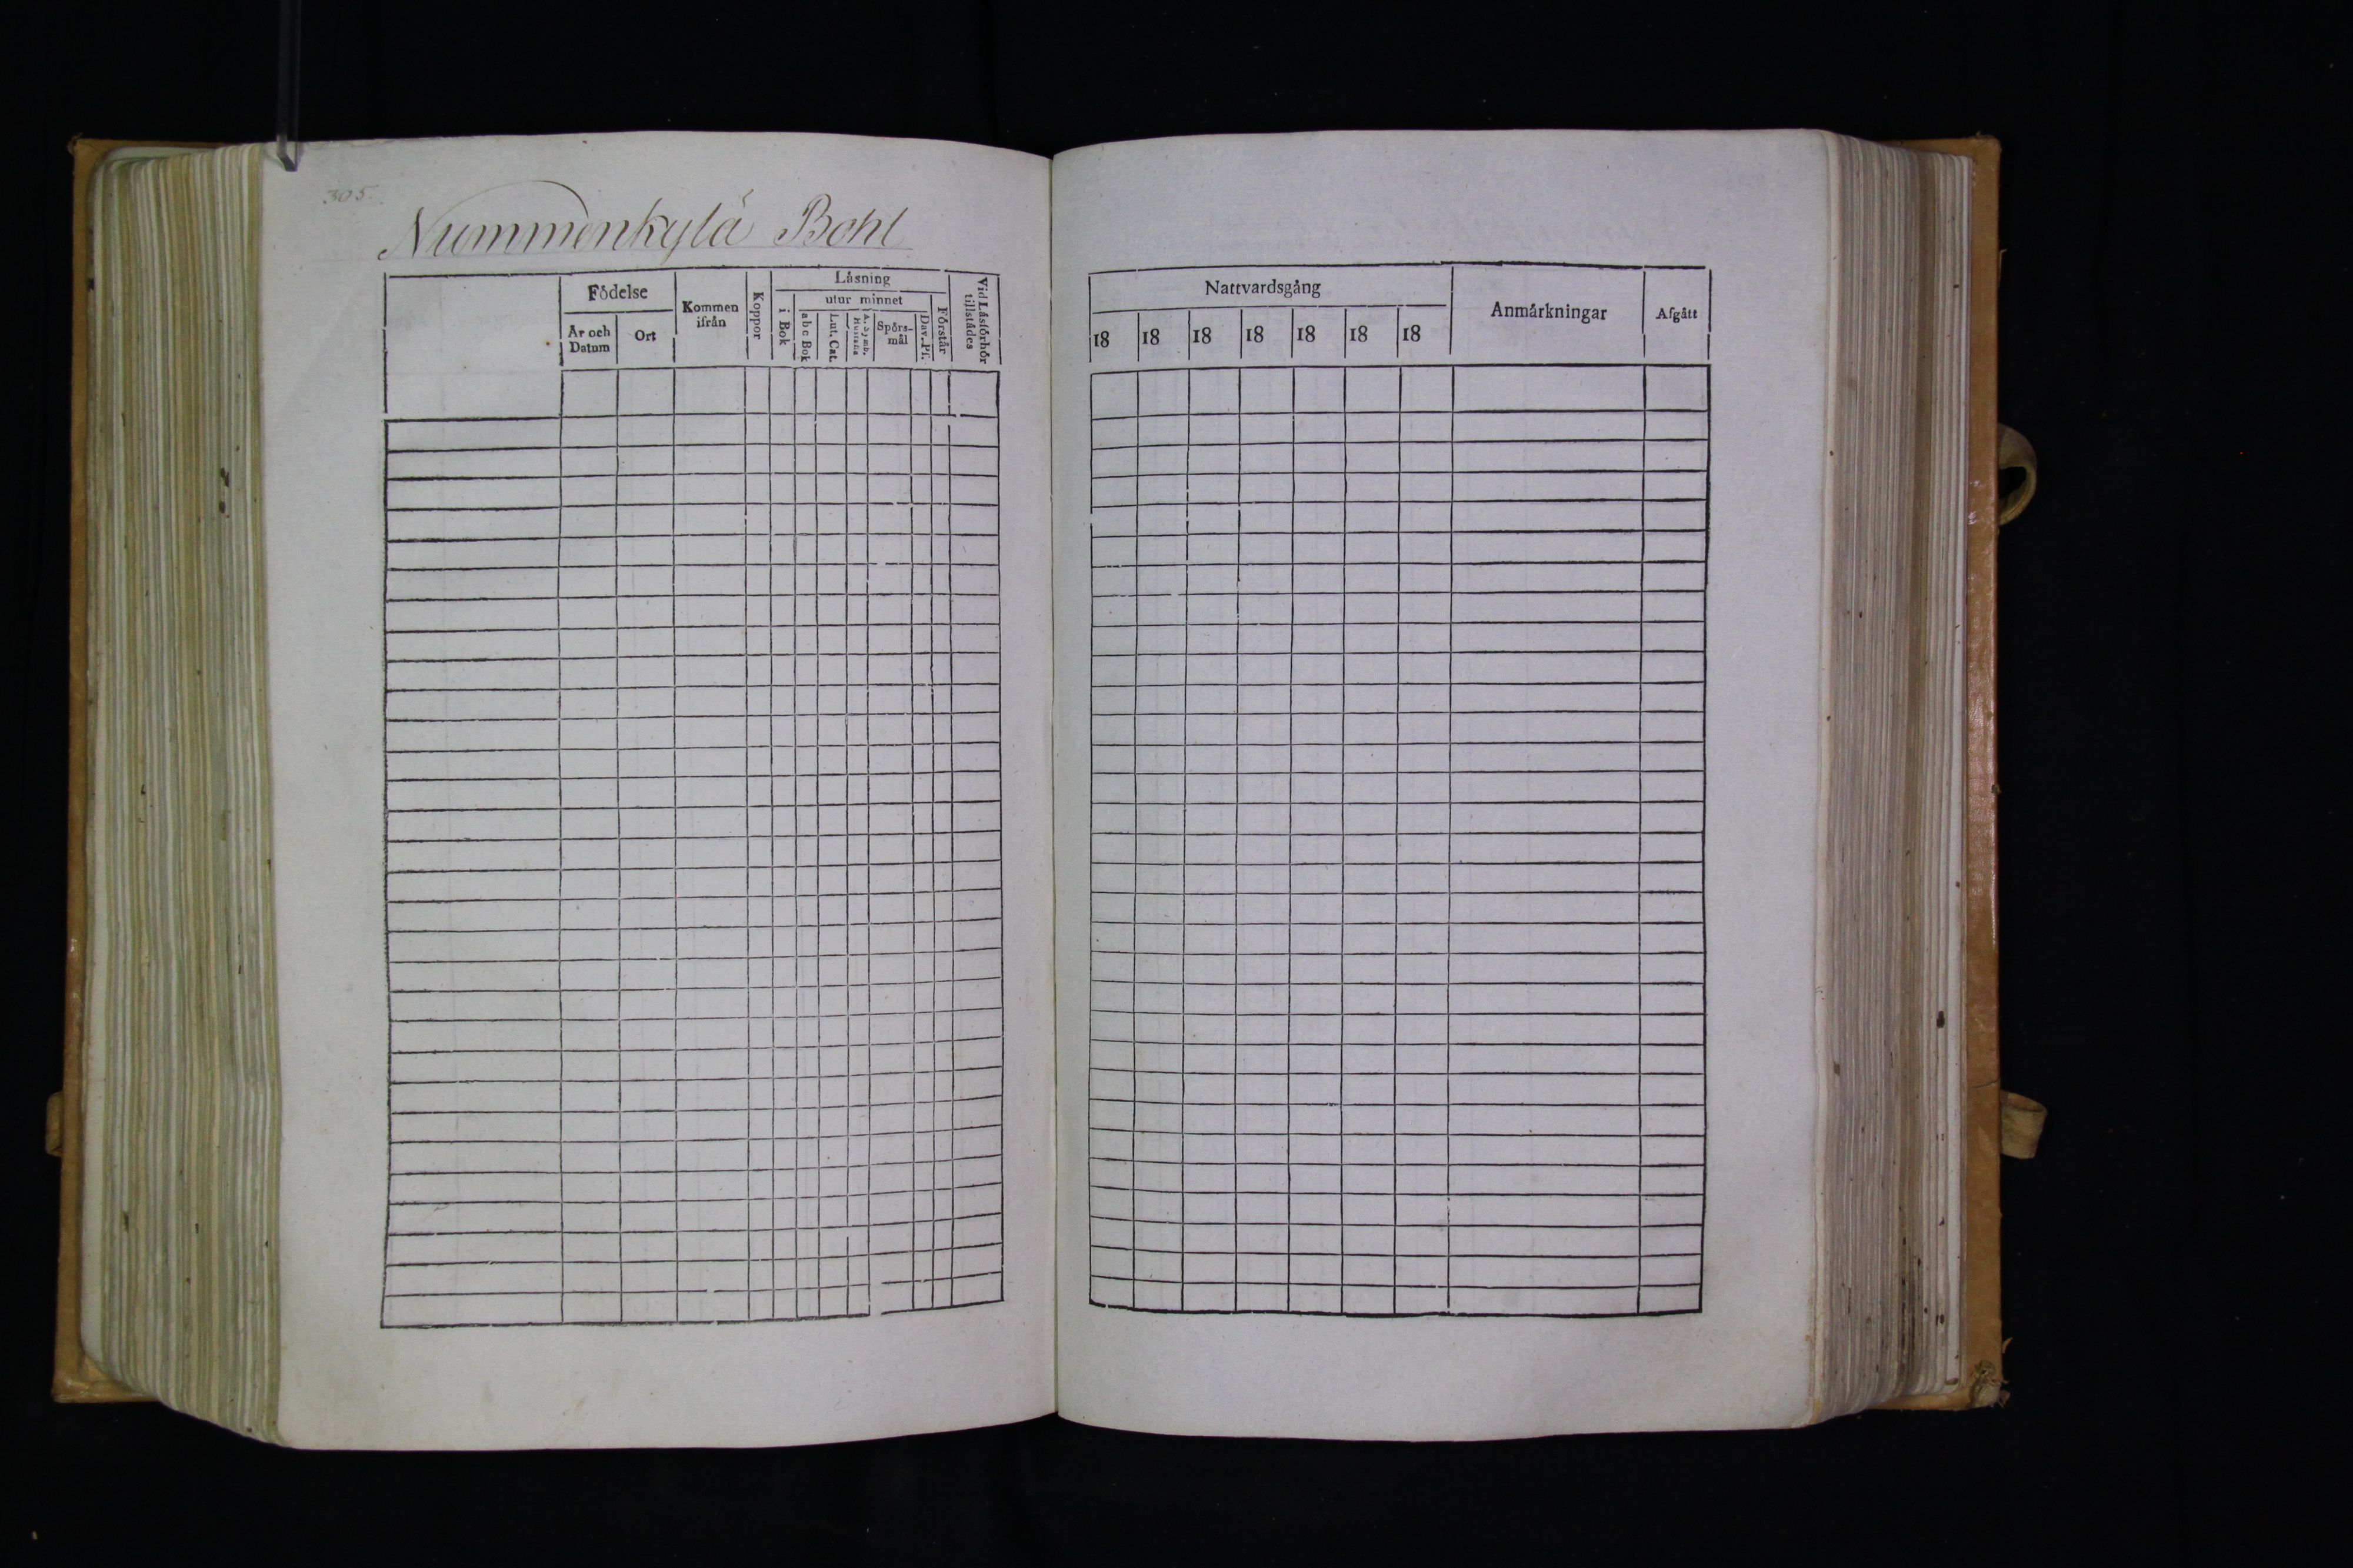 305.
Nummenkylä Bohl
Födelse
År och Datum
Ort
Kommen ifrån
Koppor
Läsning
i Bok
utur minnet
abc Bok
Lut. Cat.
A. Symb.
Spörsmål
Dav. Ps.
Förstår
Vid Läsförhör tillstådes
Nattvardsgång
18 18 18 18 18 18 18
Anmärkningar
Afgått